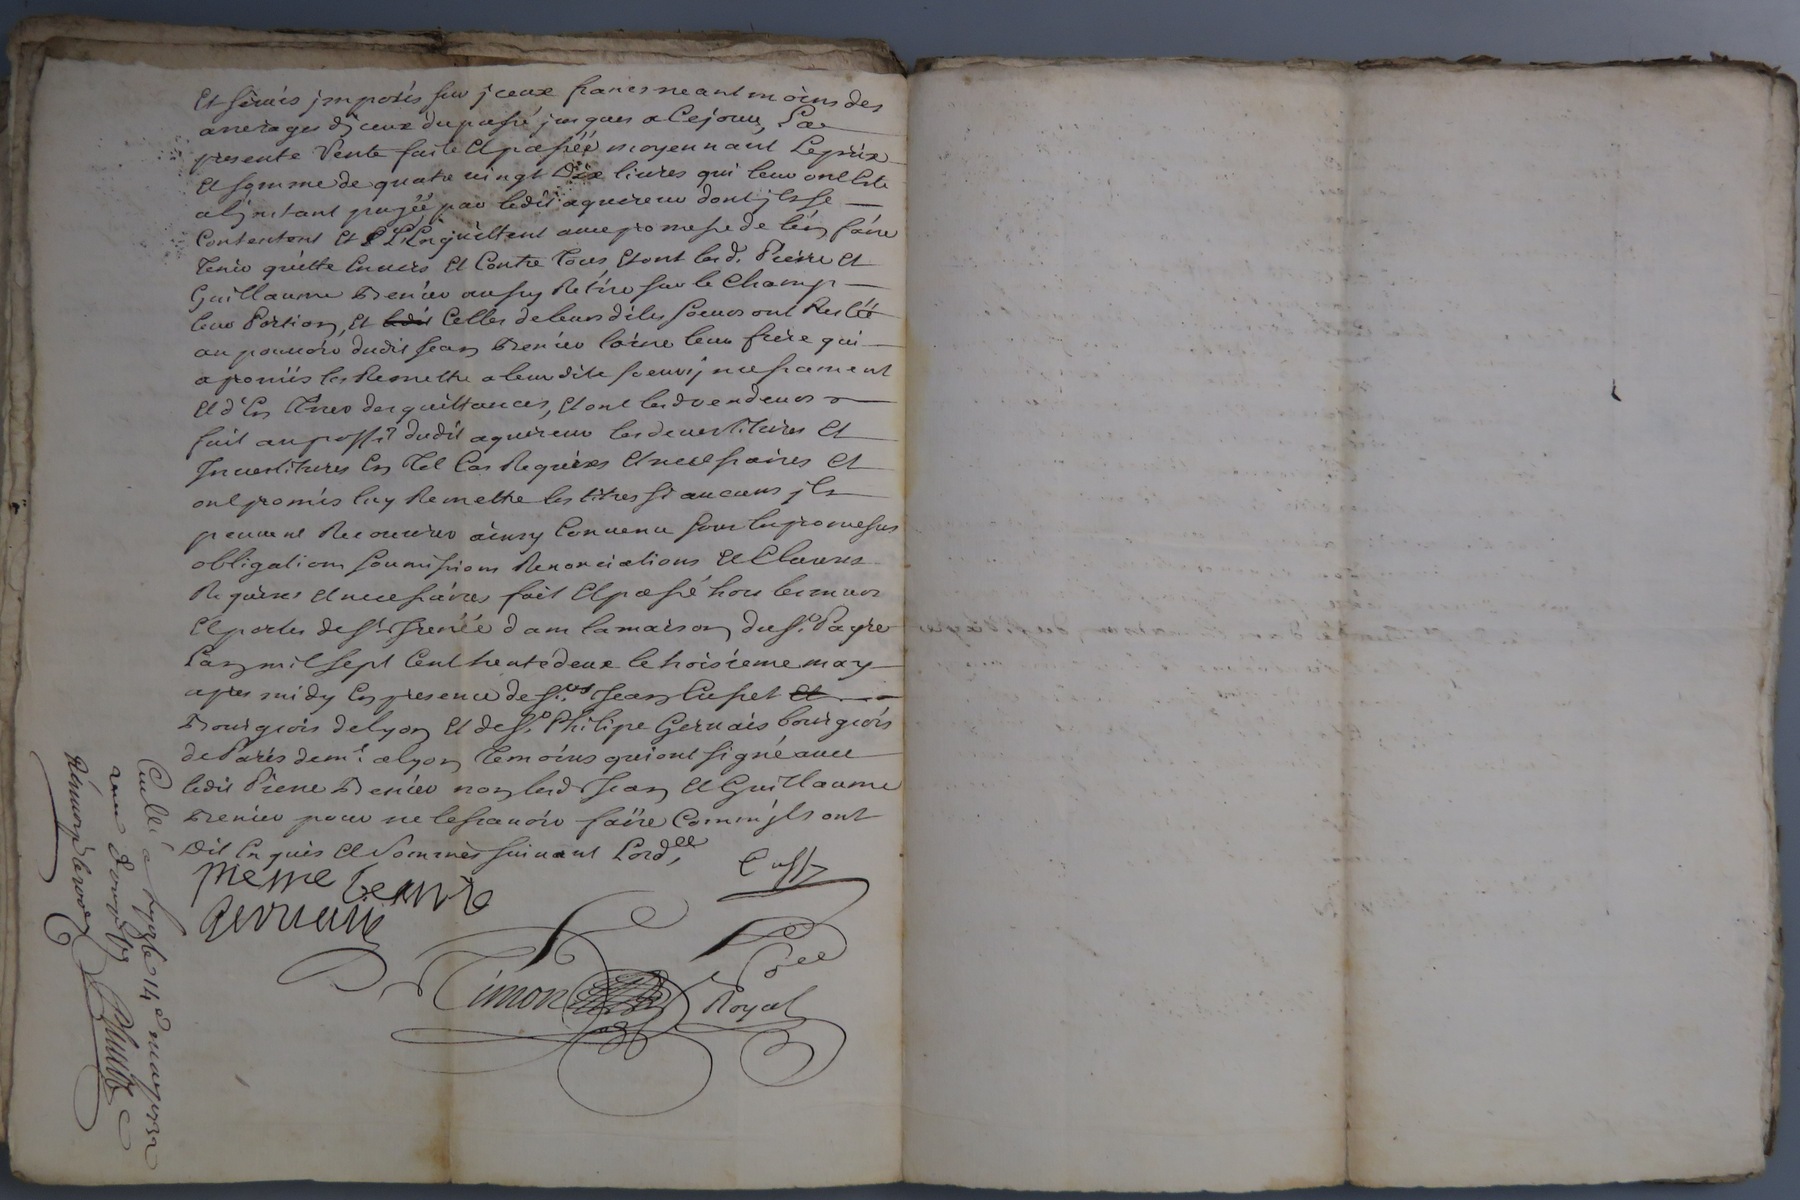 Et servis imposés sur jceux francs neantmoins des
arrerages djceux du passé jusques a Cejour, La
presente Vente faite Et passée moyennant Le prix
Et somme de quatre vingt Dix livres qui leur ont Esté
a Linstant payée par ledit aquereur dont jls se
Contentent Et L'En quittent avec promesse de len faire
Tenir quitte Envers Et Contre Tous Et ont lesd. Pierre Et
Guillaume Benier aussy Retiré sur le Champ
leur Portion, Et ledit Celles de leurs dites soeurs ont Resté
au pouvoir dudit Jean Benier laine leur frere qui
a promis les Remettre a leur dite soeurs jncessament
Et d'En Tirer des quittances, Et ont lesd vendeurs
fait au proffit dudit aquereur les devestitures Et
Investitures En Tel Cas Requises Et necessaires Et
ont promis luy Remettre les titres si aucuns jls
peuvent Recouvrer ainsy Convenu sous les promesses
obligations soumissions Renonciations Et Clauses
Requises Et necessaires fait Et passé hors les murs
Et portes de St. Irenée dans la maison du Sr. Payre
Lan mil sept Cent trente deux le troisieme may
apres midy En presence de Srs. Jean Cusset et
Bourgeois de lyon Et de Sr. Philipe Gervais bourgeois
de Paris demt. a lyon Temoins qui ont signé avec
ledit Pierre Benier non lesd Jean Et Guillaume
Benier pour ne le sçavoir faire Comm jls ont
Dit Enquis Et Sommés suivant Lordce
Cusset
pierre benie
gervais
Simon
Nore
Royal
Con.llé a lyon le 14e may 1732
Reçu douze sols